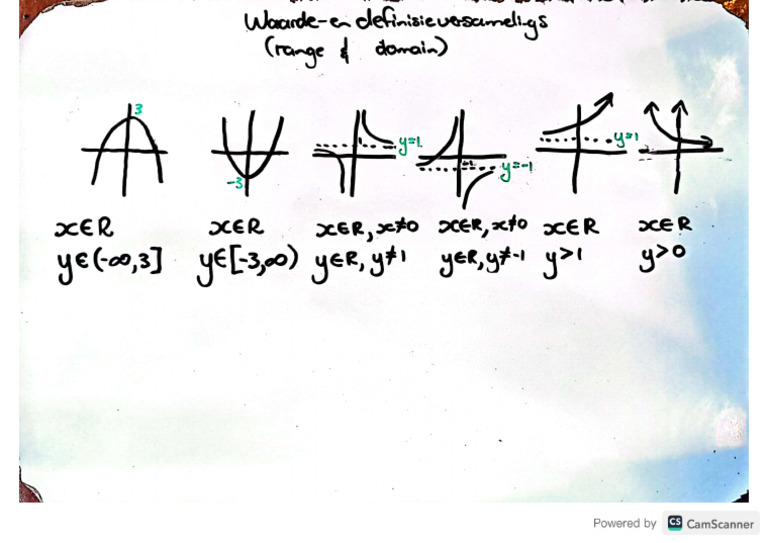 Waarde-en definisieversamelings
(range & domain)
3
-3
y=1
y=-1
y=1
x∈R
x∈R
x∈R, x≠0
x∈R, x≠0
x∈R
x∈R
y∈(-∞,3]
y∈[-3,∞)
y∈R, y≠1
y∈R, y≠-1
y>1
y>0
Powered by CS CamScanner